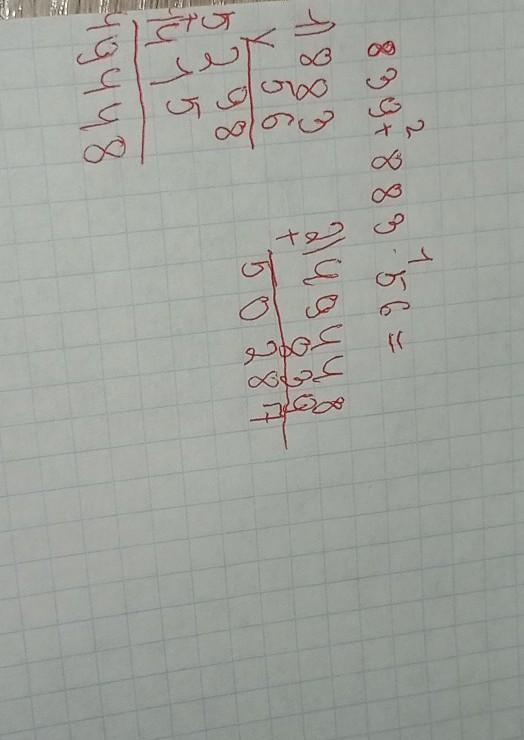 2 1
839+883·56=
1) 883
×
56
5298
+
4415
49448
2) 49448
+
839
50287